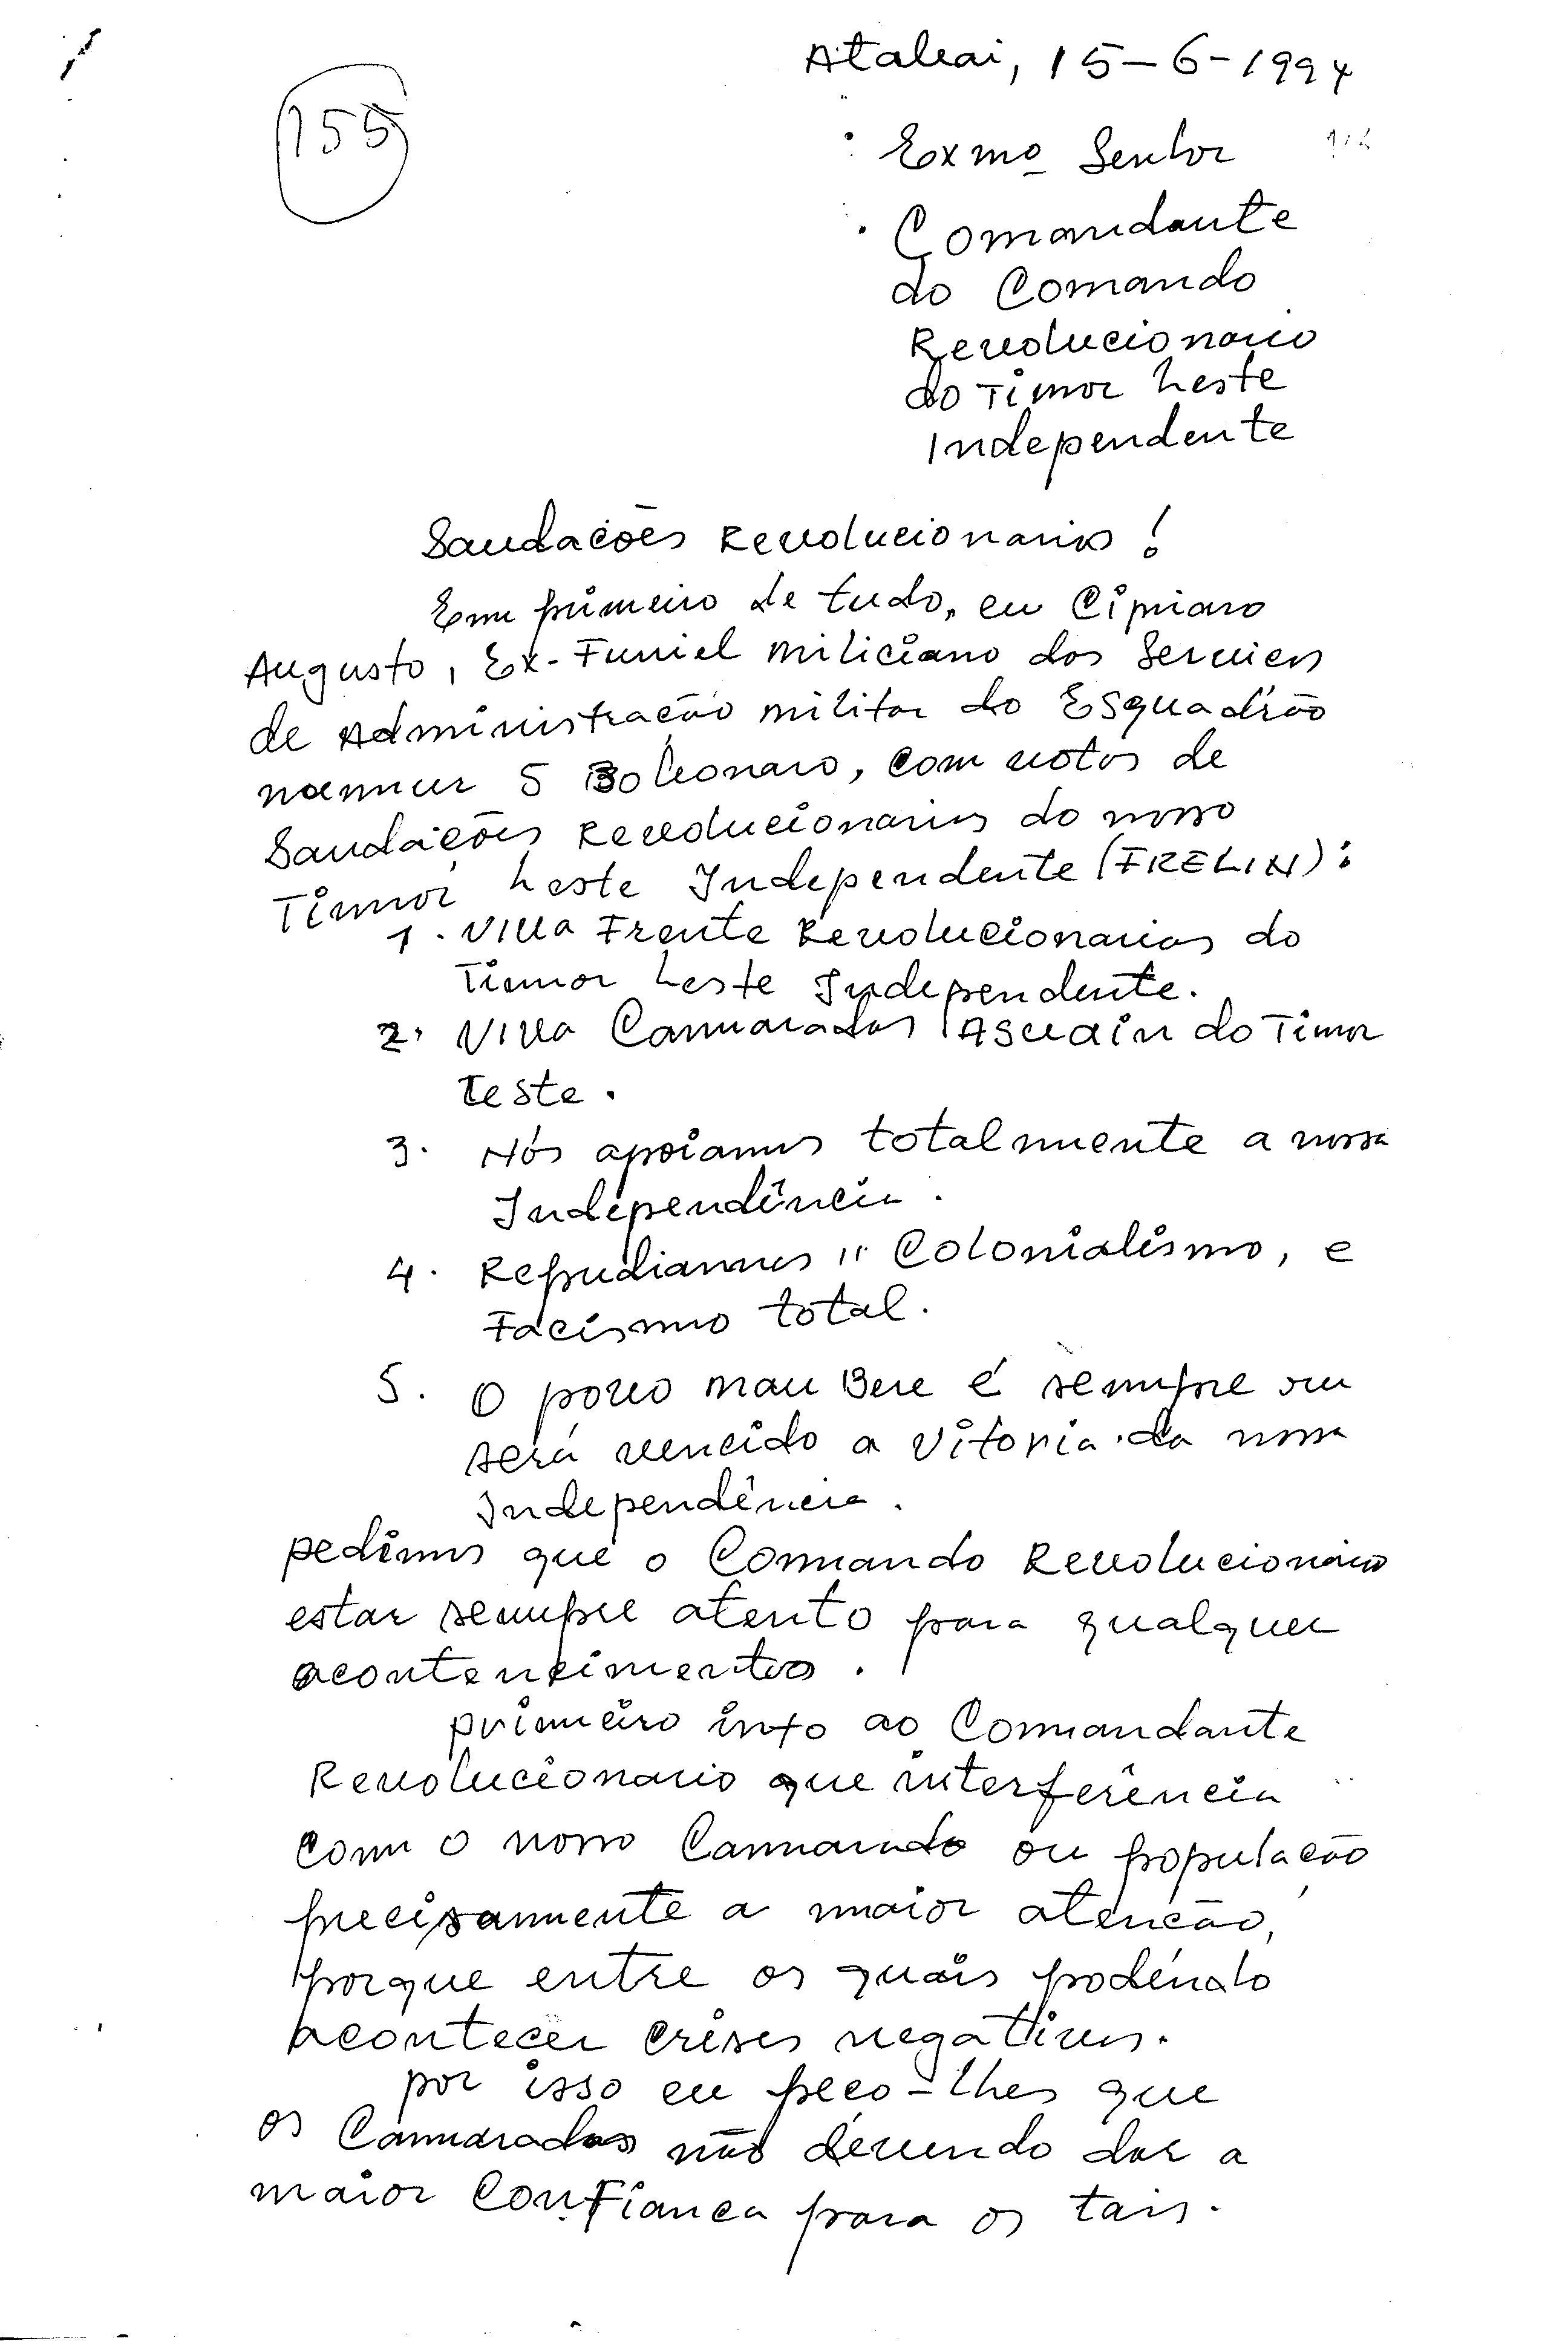 Ataleai, 15-6-1994
155
Exmo Senhor
Comandante
do Comando
Revolucionario
do Timor Leste
Independente
Saudacões Revolucionarios!
Em primeiro de tudo, eu Cipriano
Augusto, Ex-Furriel miliciano dos Servicos
de Administracão militar do Esquadrão
numer 5 Boleonaro, com votos de
Saudacões Revolucionarios do nosso
Timor Leste Independente (FRELIN):
1. Viva Frente Revolucionarios do
Timor Leste Independente.
2. Viva Camaradas Asuain do Timor
Leste.
3. Nós apoiamos totalmente a nossa
Independência.
4. Repudiamos " Colonialismo, e
Facismo total.
5. O povo mau Bere é sempre ou
será vencido a vitoria da nossa
Independência.
pedimos que o Comando Revolucionario
estar sempre atento para qualquer
acontencimentos.
primeiro info ao Comandante
Revolucionario que interferência
com o nosso Camarado ou populacão
precisamente a maior atencão,
porque entre os quais podendo
acontecer crises negativos.
por isso eu peco-lhes que
os Camaradas não devendo dar a
maior confianca para os tais.